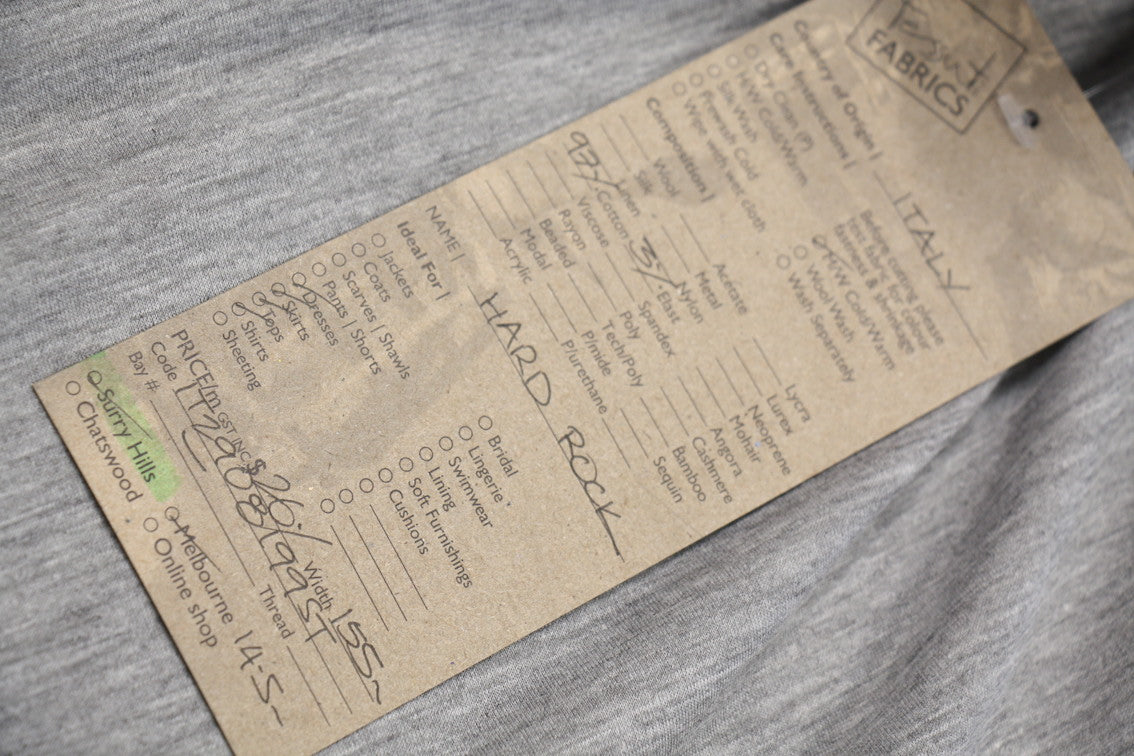 Tessuti
FABRICS
Country of Origin | ITALY
Care Instructions |
Dry Clean (P)
H/W Cold/Warm
Silk Wash
Prewash Cold
Wipe with wet cloth
Before cutting please
test fabric for colour
fastness & shrinkage
M/W Cold/Warm
Wool Wash
Wash Separately
Composition |
Wool
Silk
Linen
97% Cotton
Viscose
Rayon
Beaded
Modal
Acrylic
Acetate
Metal
Nylon
3% Elast
Spandex
Poly
Tech/Poly
P/mide
P/urethane
Lycra
Lurex
Neoprene
Mohair
Angora
Cashmere
Bamboo
Sequin
NAME | HARD ROCK
Ideal For |
Jackets
Coats
Scarves | Shawls
Pants | Shorts
Dresses
Skirts
Tops
Shirts
Sheeting
Bridal
Lingerie
Swimwear
Lining
Soft Furnishings
Cushions
PRICE/m GST INC $26/ Width 155~
Code Thread
Bay #
Surry Hills
Chatswood
Melbourne 14-5~
Online shop